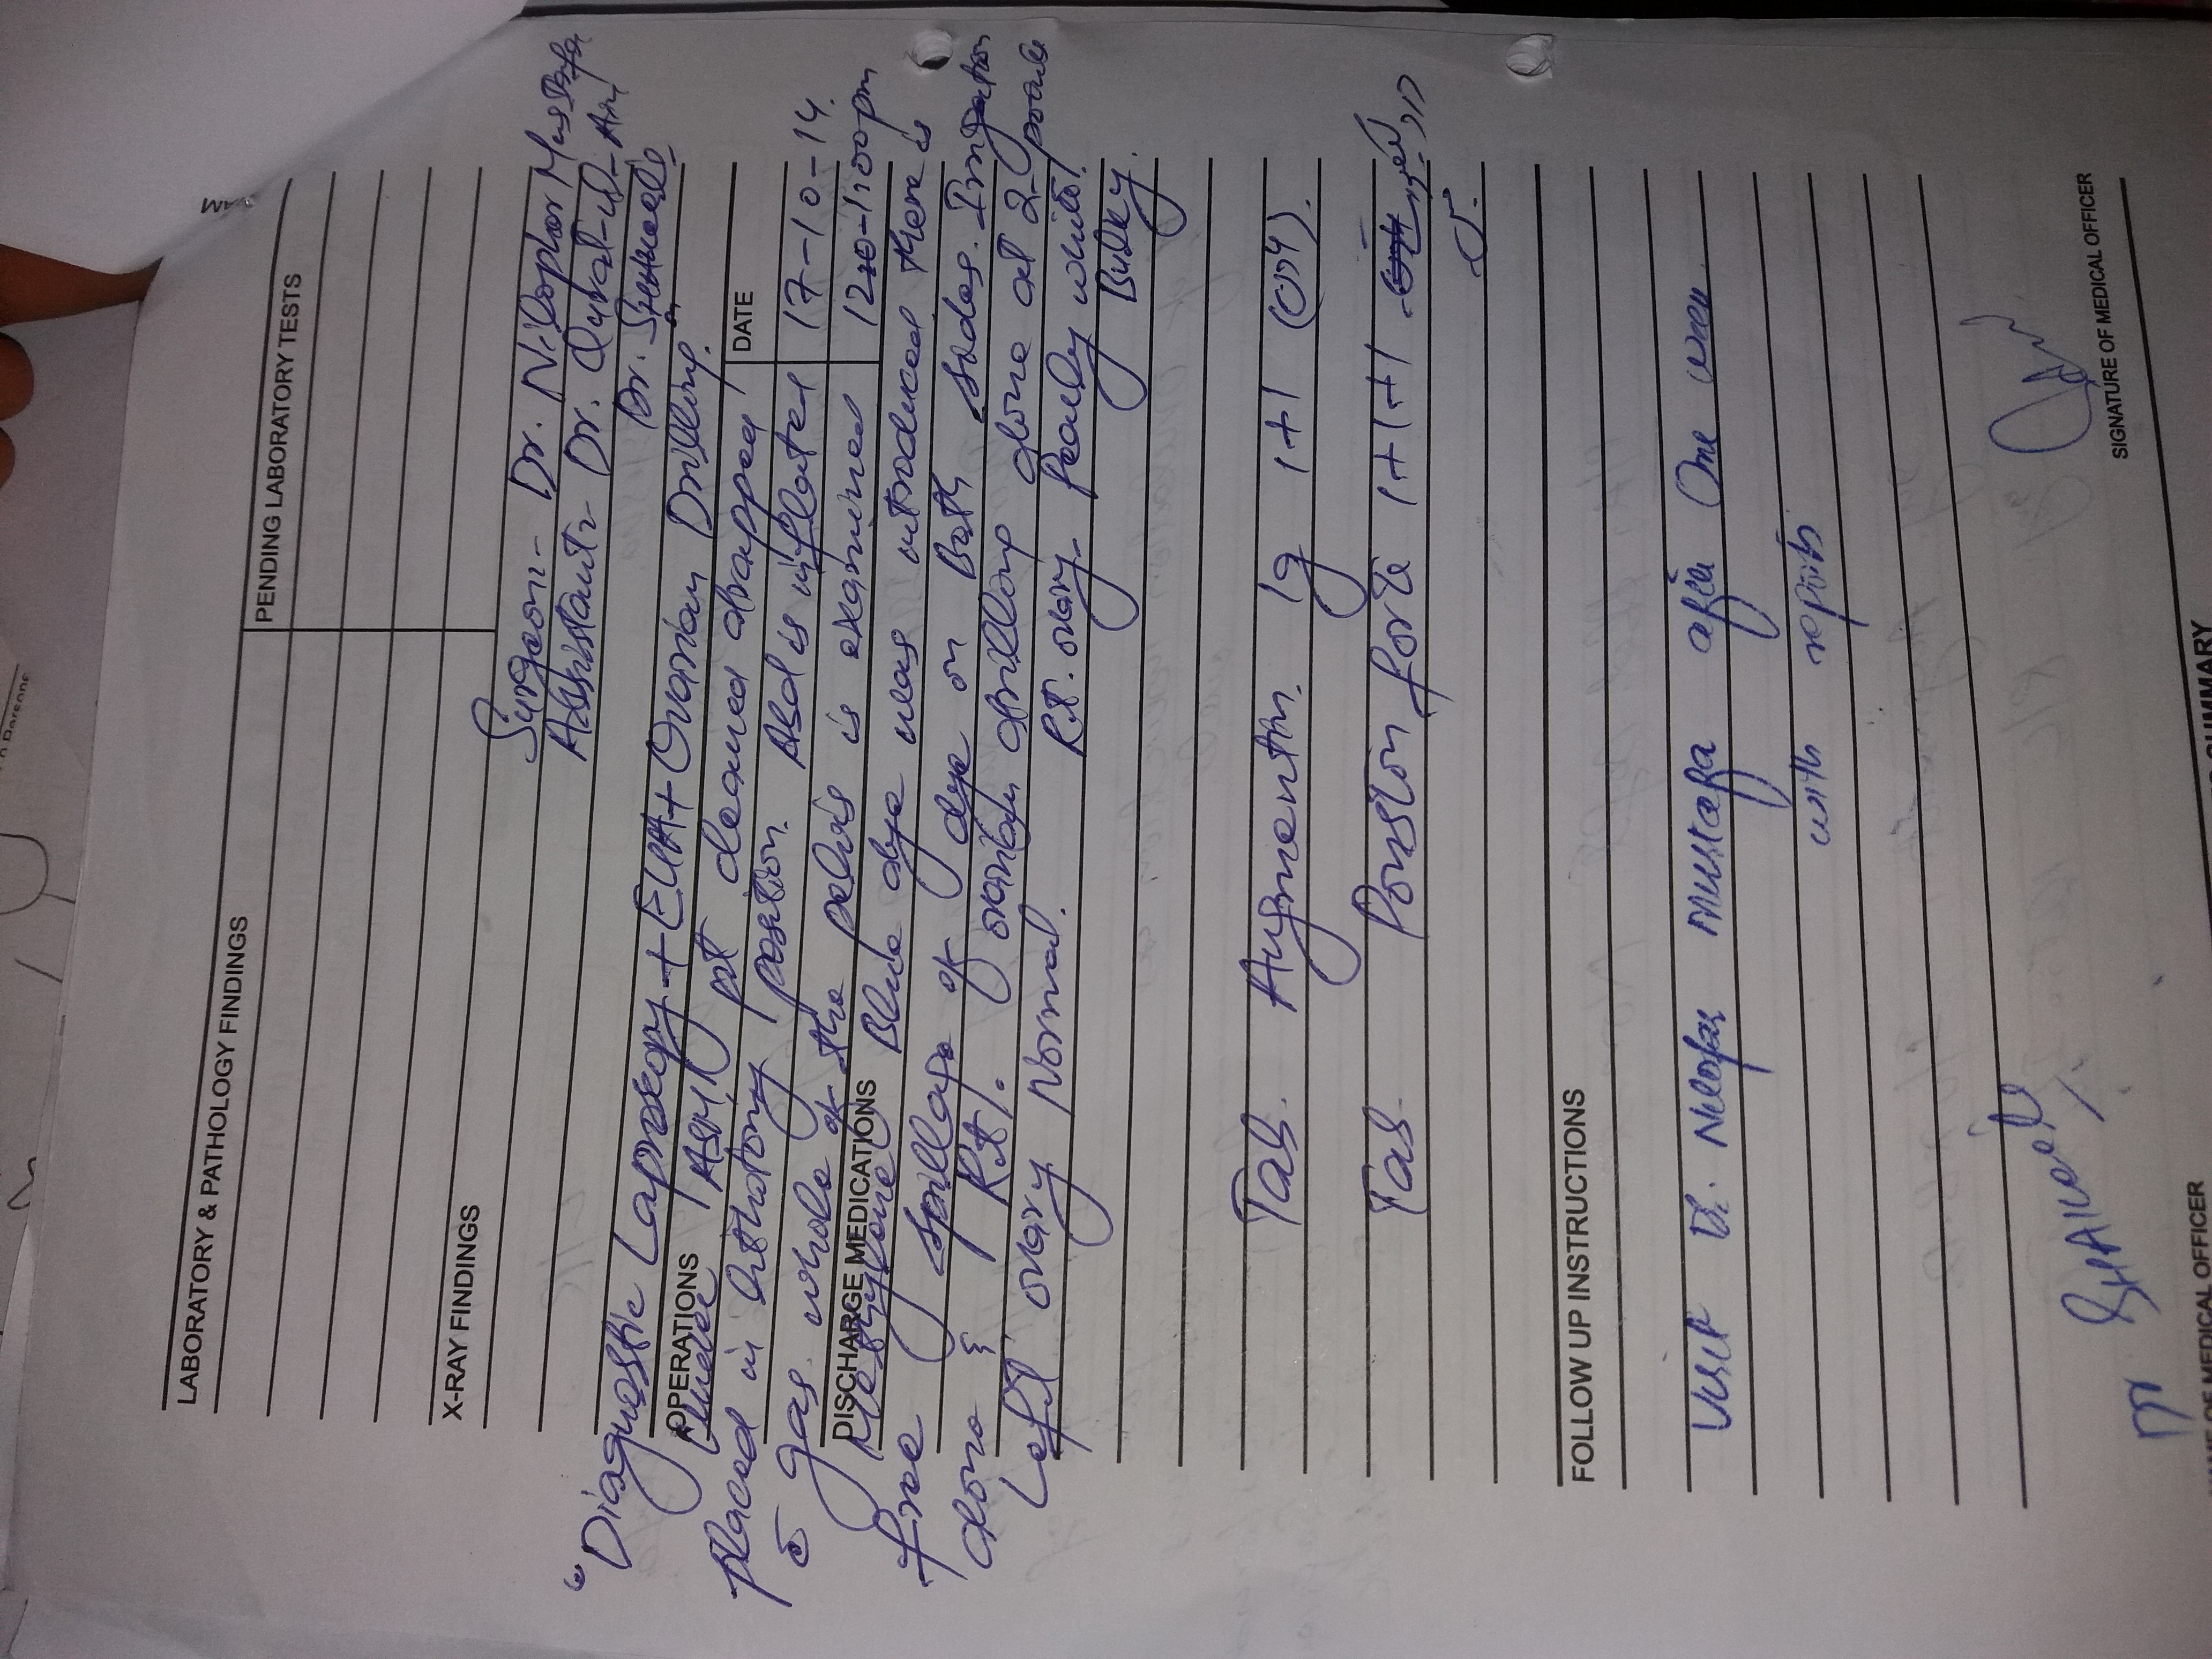 LABORATORY & PATHOLOGY FINDINGS
PENDING LABORATORY TESTS
X-RAY FINDINGS
Surgeon- Dr. Nilophar Mustafa
Assistant- Dr. Qurat-ul-Ain
Dr.
"Diagnostic Laproscopy + EUA + Ovarian Drilling.
OPERATIONS
DATE
Under pt cleaned drapped
placed in lithotomy position. Abd is inflated
17-10-14.
c̄ gas. whole of the pelvis is examined
DISCHARGE MEDICATIONS
Blue dye was introduced there is
free spillage of dye on Both sides.
done & ovarian drilling done at 2-
Left ovary Normal. Rt. ovary- Pearly white/
Bulky.
Tab. Augmentin. 1g 1+1
Tab Ponston forte 1+1+1
FOLLOW UP INSTRUCTIONS
Visit Dr. Nilofar Mustafa after One week
with reports
Dr
SIGNATURE OF MEDICAL OFFICER
OF MEDICAL OFFICER
SUMMARY